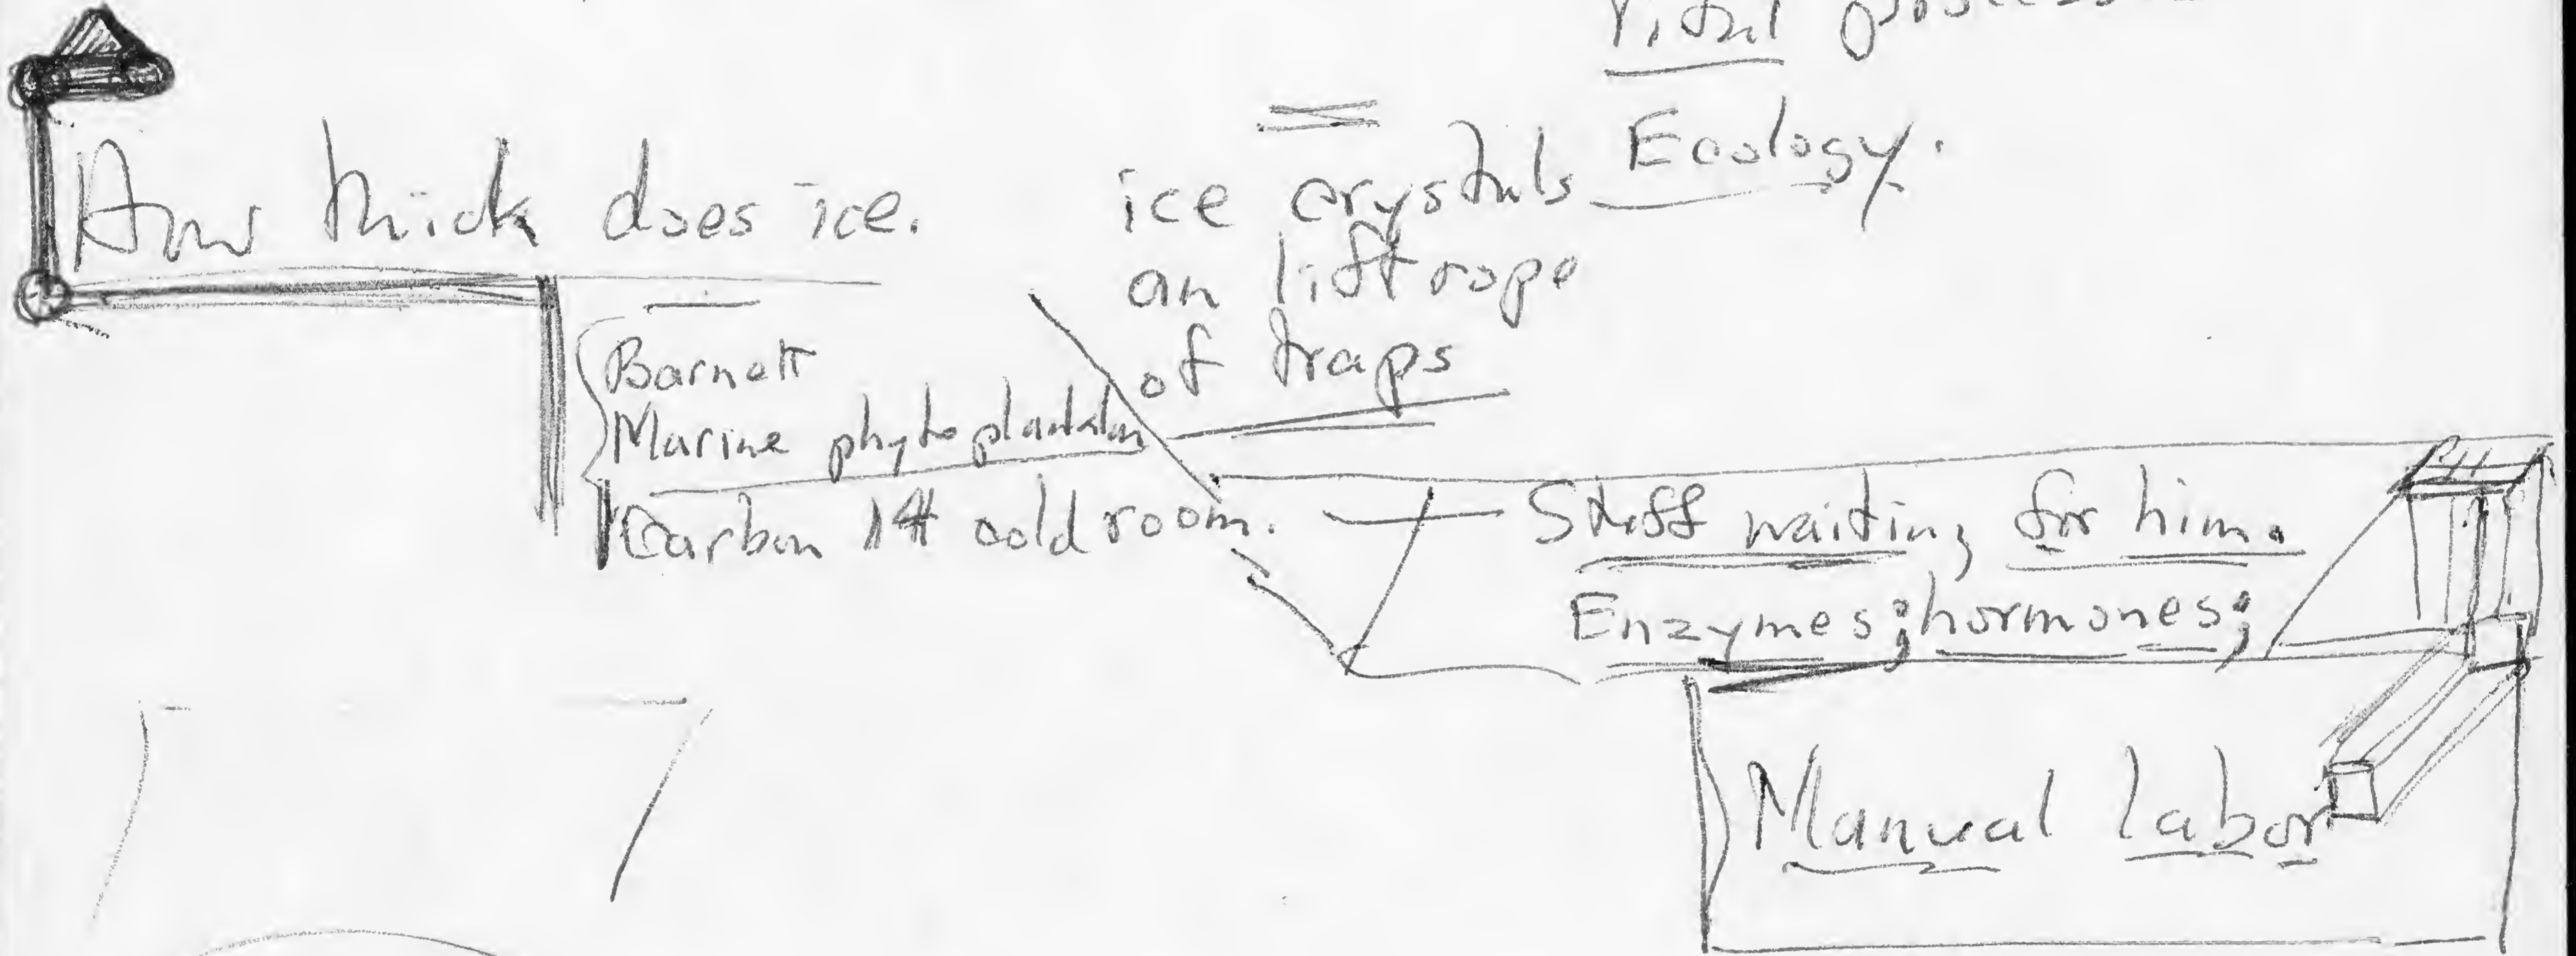 Vital
Ecology.
How thick does ice.
ice crystals
on lift rope
of traps
Barnett
Marine phytoplankton
Carbon 14 cold room.
Stuff waiting for him.
Enzymes; hormones;
Manual labor